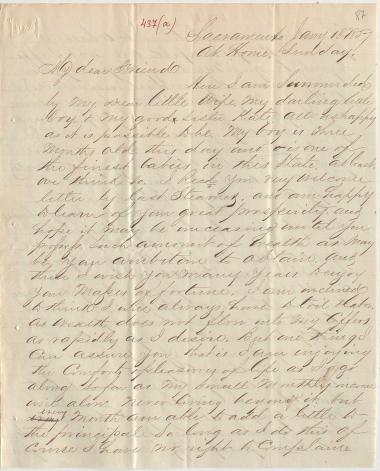 437(a)
87
Sacramento Jany 18 1857
At Home, Sunday.
My dear Friend
Here I am surrounded
by my dear little Wife my darling little
boy & my good Sister Kate all as happy
as it is possible to be. My boy is three
months old this day and is one of
the finest babies in this State, at least
we think so. I have your very welcome
letter by last Steamer, and am happy
to learn of your great prosperity and
hope it may be unceasing until you
possess such amount of wealth as may
be your ambition to obtain, and
then I wish you many years to enjoy
your fortune. I am inclined
to think I shall always have to toil
as wealth does not flow into my Coffers
as rapidly as I desire. But one thing I
can assure you that is I am enjoying
the Comforts & pleasures of life as I go
along so far as my small monthly income
will allow never living beyond it but
every
month am able to add a little to
the principal. So long as I do this of
Course I have no right to Complain